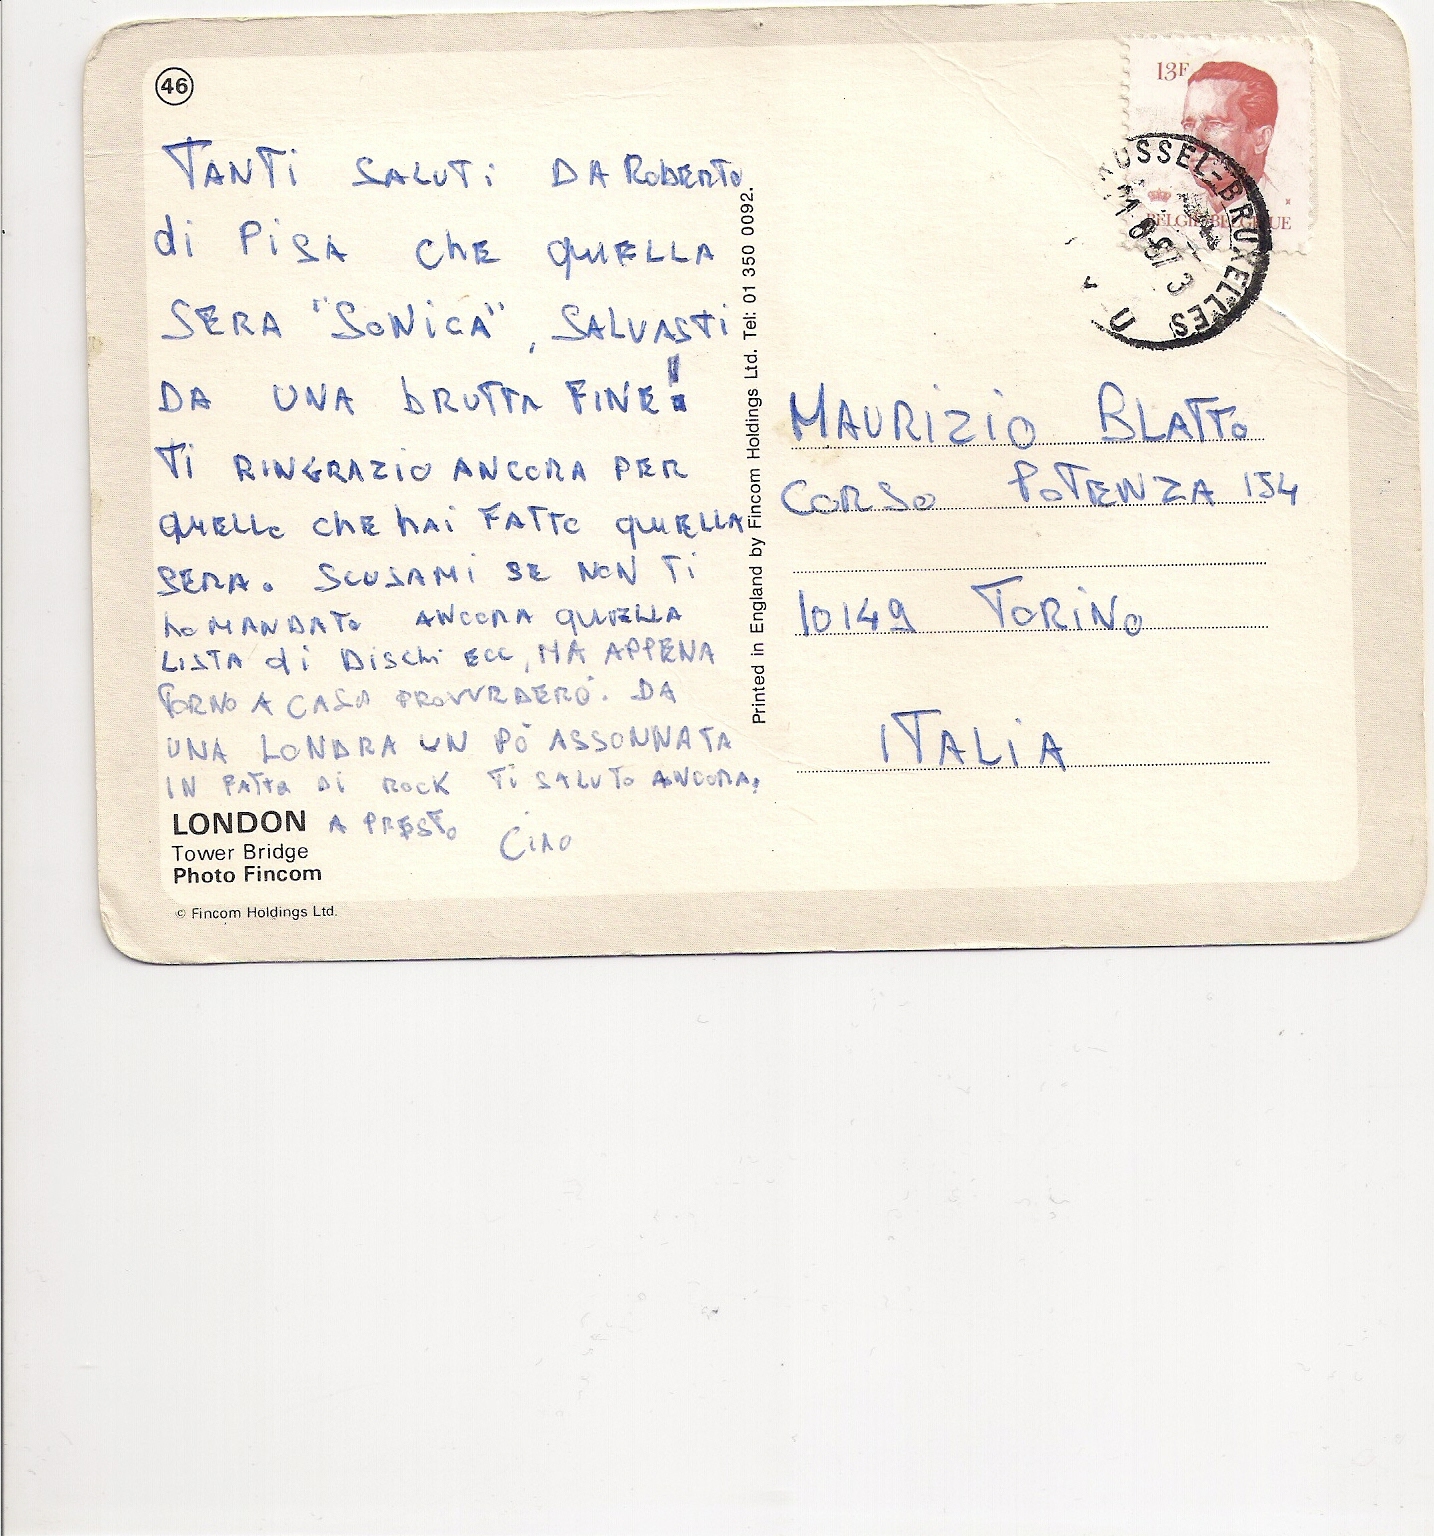 46
TANTI SALUTI DA ROBERTO
di PISA CHE QUELLA
SERA "SONICA", SALVASTI
DA UNA bRUTTA FINE!
Ti RINGRAZIO ANCORA PER
QUELLO CHE hAi FATTO QUELLA
SERA. SCUSAMI SE NON Ti
hO MANDATO ANCORA QUELLA
LISTA di DISCHI ECC, MA APPENA
TORNO A CASA PROVVEDERO'. DA
UNA LONDRA UN PÒ ASSONNATA
IN FATTO Di ROCK Ti SALUTO ANCORA.
A PRESTO CIAO
LONDON
Tower Bridge
Photo Fincom
© Fincom Holdings Ltd.
Printed in England by Fincom Holdings Ltd. Tel: 01 350 0092.
13F
BELGIE-BELGIQUE
BRUSSEL-BRUXELLES
MAURIZIO BLATTO
CORSO POTENZA 154
10149 TORINO
ITALIA